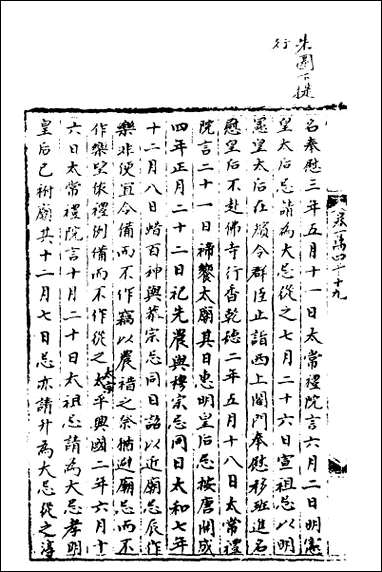 朱圈下提
行
卷一萬四千十九
名奉慰三年五月十一日太常禮院言六月二日明憲
皇太后忌請為大忌從之七月二十六日宣祖忌以明
憲皇太后在殯令群臣止詣西上閤門奉慰移班進名
慰皇后不赴佛寺行香乾德二年五月十八日太常禮
院言二十一日禘饗太廟其日惠明皇后忌按唐開成
四年正月二十二日祀先農與穆宗忌同日太和七年
十二月八日蜡百神與敬宗忌同日詔以近廟忌辰作
樂非便宜令備而不作竊以農禮之祭猶避廟忌而不
作樂望依禮例備而不作從之太宗太平興國二年六月十
六日太常禮院言十月二十日太祖忌請為大忌孝明
皇后已祔廟其十二月七日忌亦請升為大忌從之淳